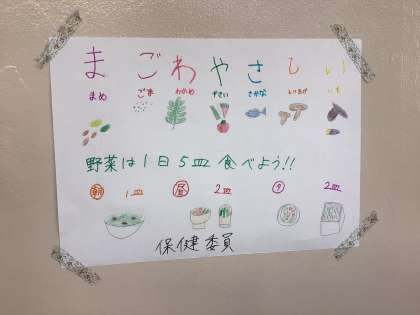 まごわやさしい
まめ ごま わかめ やさい さかな しいたけ いも
野菜は1日5皿食べよう!!
朝 1皿 昼 2皿 夕 2皿
保健委員